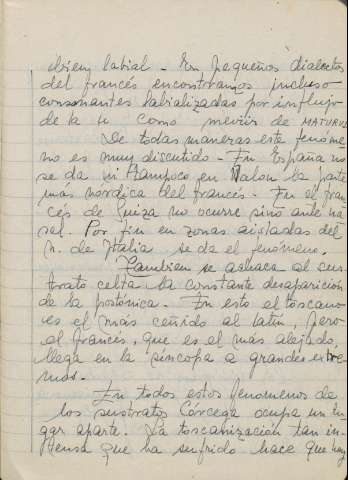 bien labial - En pequeños dialectos
del francés encontramos incluso
consonantes labializadas por influjo
de la u como de MATURUS
De todas maneras este fenóme
no es muy discutido - En España no
se da ni tampoco en Valon la parte
más nórdica del francés - En el fran
cés de Suiza no ocurre sino ante na
sal. Por fin en zonas aisladas del
n. de Italia se da el fenómeno.
Tambien se achaca al sus
trato celta la constante desaparición
de la postónica. En esto el toscano
es el más ceñido al latín, pero
el francés, que es el más alejado,
llega en la síncopa a grandes extre
mos.
En todos estos fenomenos de
los sustratos Córcega ocupa un lu
gar aparte. La toscanización tan in-
tensa que ha sufrido hace que hay